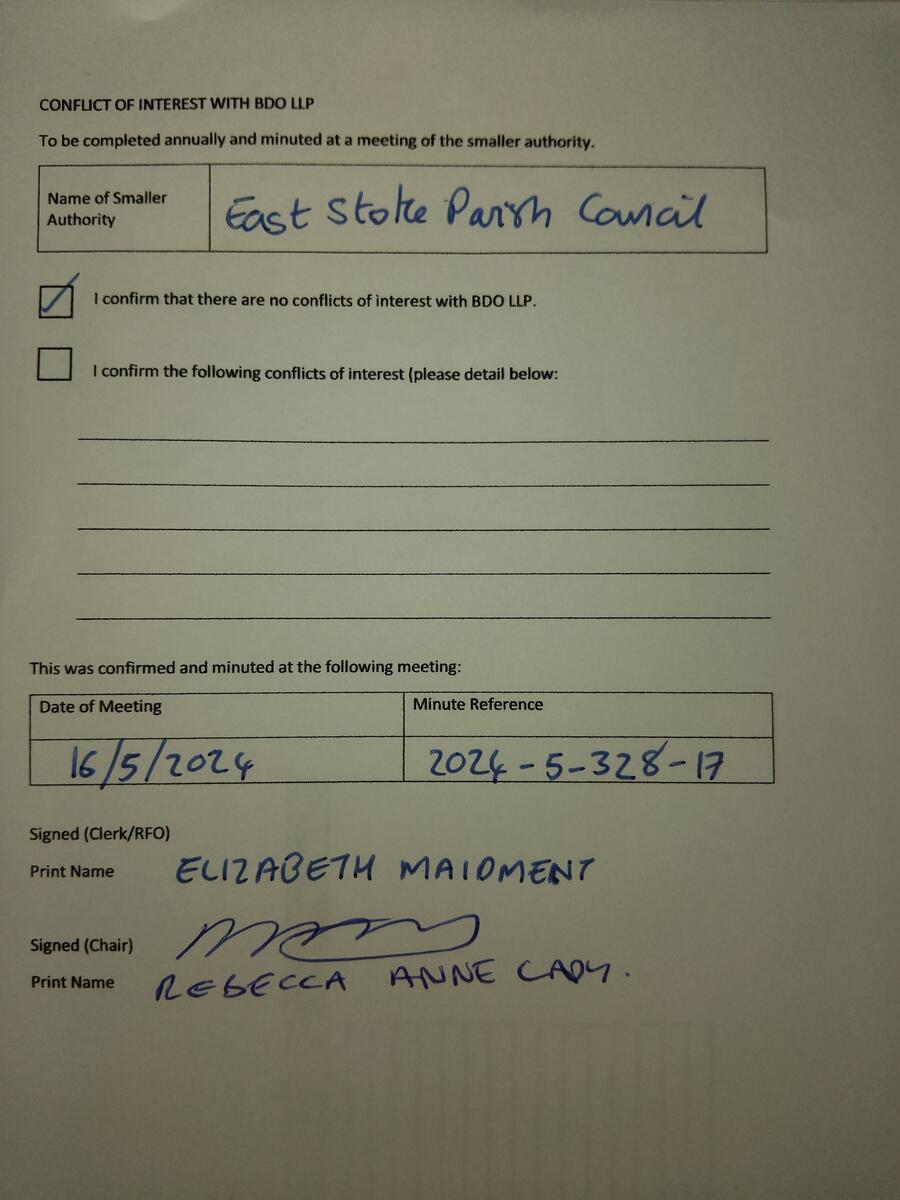 CONFLICT OF INTEREST WITH BDO LLP
To be completed annually and minuted at a meeting of the smaller authority.
Name of Smaller Authority
East Stoke Parish Council
I confirm that there are no conflicts of interest with BDO LLP.
I confirm the following conflicts of interest (please detail below:
This was confirmed and minuted at the following meeting:
Date of Meeting Minute Reference
16/5/2024 2024-5-328-17
Signed (Clerk/RFO)
Print Name ELIZABETH MAIDMENT
Signed (Chair)
Print Name REBECCA ANNE CADY.